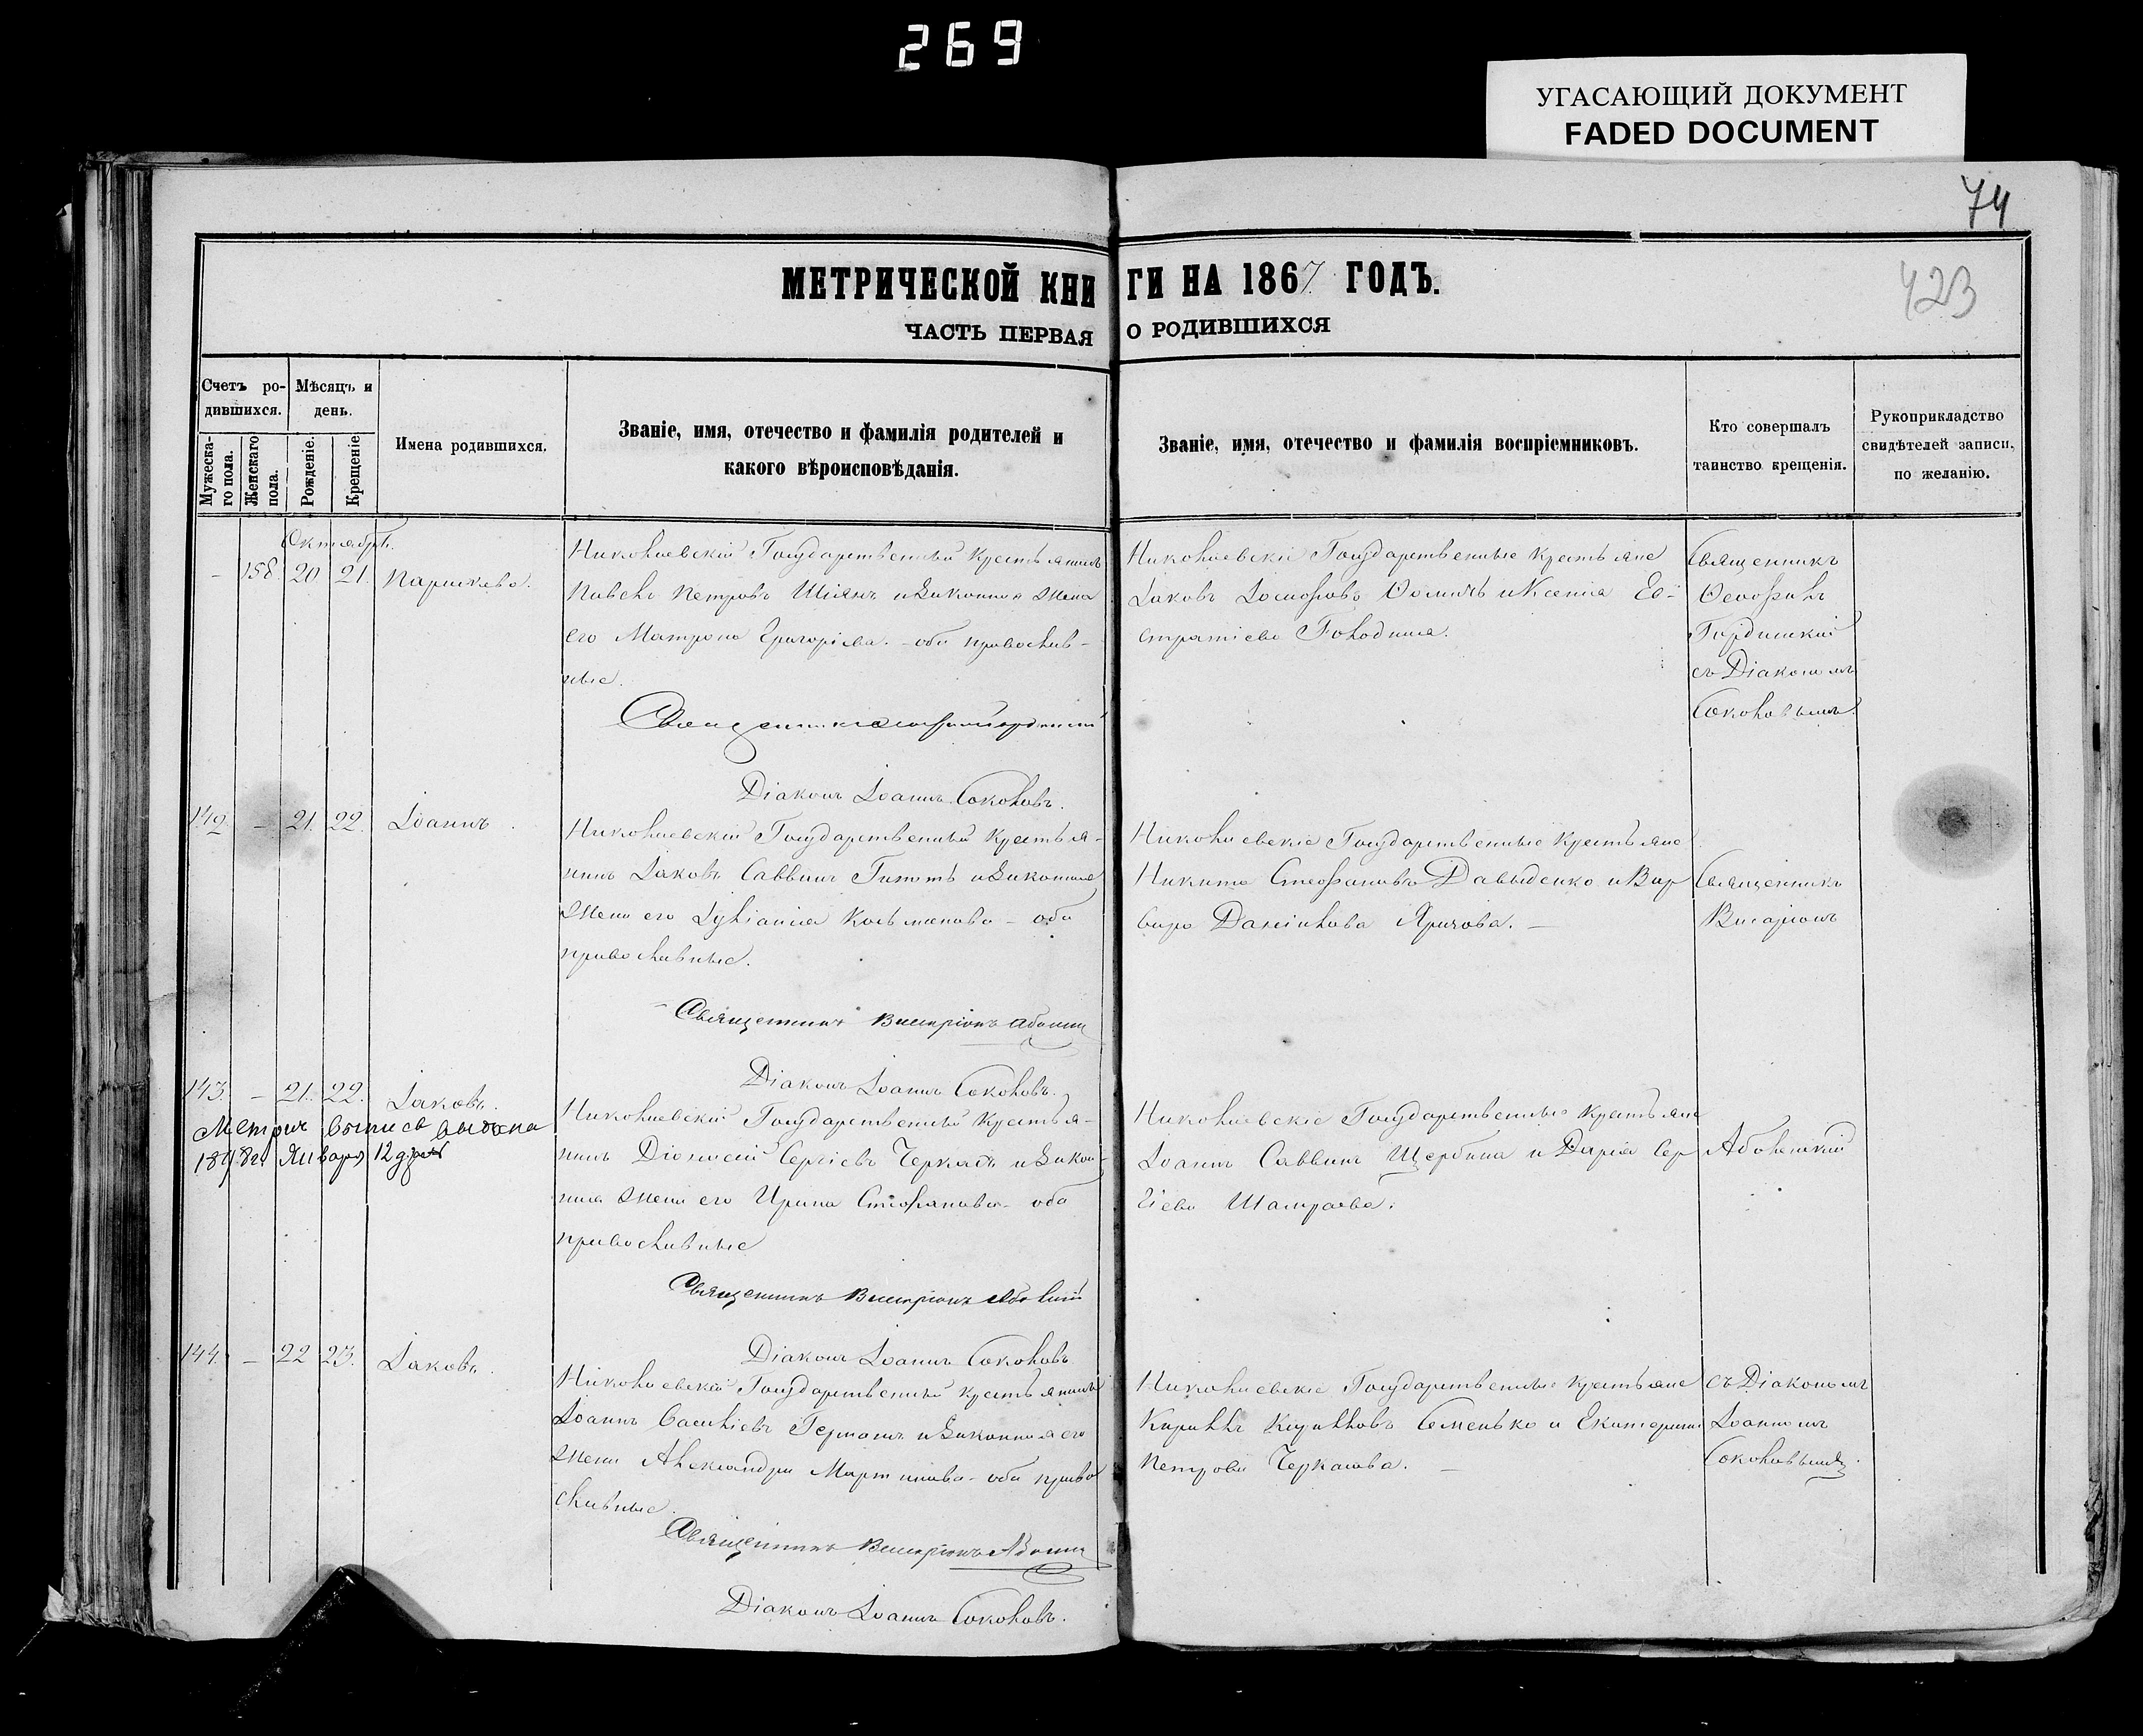 269
УГАСАЮЩИЙ ДОКУМЕНТ
FADED DOCUMENT
74
423
МЕТРИЧЕСКОЙ КНИГИ НА 1867 ГОДЪ.
ЧАСТЬ ПЕРВАЯ О РОДИВШИХСЯ
Счетъ ро-
дившихся.
Мужеска-
го пола.
Женскаго
пола.
Мѣсяцъ и
день.
Рожденіе.
Крещеніе
Имена родившихся.
Званіе, имя, отечество и фамилія родителей и
какого вѣроисповѣданія.
Званіе, имя, отечество и фамилія воспріемниковъ.
Кто совершалъ
таинство крещенія.
Рукоприкладство
свидѣтелей записи,
по желанію.
Октябрь.
- 158. 20 21. Параскева.
Николаевскій Государственный крестьянинъ
Павелъ Петровъ и законная жена
его Матрона Григоріева. - оба православ-
ные.
Священникъ
Діаконъ Іоаннъ Соколовъ.
Николаевскіе Государственные крестьяне
Іаковъ и Ксенія Ев-
стратіева
Священникъ
Ѳеофилъ
съ Діакономъ
Соколовымъ.
142 - 21. 22. Іоаннъ.
Николаевскій Государственный крестья-
нинъ Іаковъ Саввинъ и законная
жена его Іуліанія Косьманова - оба
православные.
Священникъ Висаріонъ
Діаконъ Іоаннъ Соколовъ.
Николаевскіе Государственные крестьяне
Никита Стефановъ Давыденко и Вар
вара Даніилова
Священникъ
Висаріонъ
143. - 21. 22. Іаковъ.
Метрич выпись выдана
1898г. Января 12 дня
Николаевскій Государственный крестья-
нинъ Діонисій Сергіевъ Черкасъ и закон
ная жена его Ирина Стефанова - оба
православные
Священникъ Висаріонъ
Діаконъ Іоаннъ Соколовъ
Николаевскіе Государственные крестьяне
Іоаннъ Саввинъ Щербина и Дарія Сер
гіева Шамраева.
144. - 22 23. Іаковъ.
Николаевскій Государственный крестьянинъ
Іоаннъ Василіевъ Германъ и законная его
жена Александра Мартинова - оба право
славные.
Священникъ Висаріонъ
Діаконъ Іоаннъ Соколовъ.
Николаевскіе Государственные крестьяне
Кириллъ Кирилловъ Семенько и Екатерина
Петрова Черкасова.
съ Діакономъ
Іоанномъ
Соколовымъ.